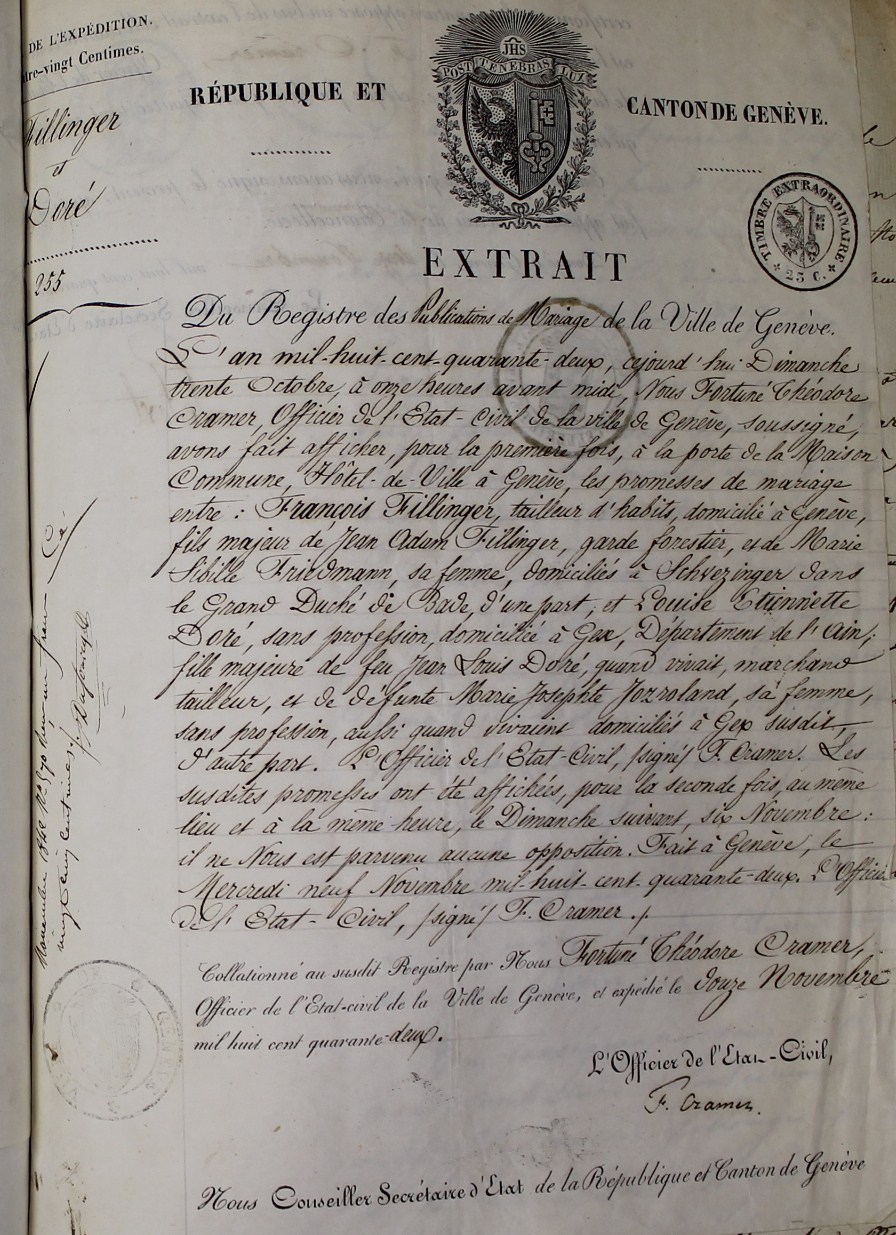 DE L'EXPÉDITION.
tre-vingt Centimes.
Fillinger
et
Doré
255
JHS
POST TENEBRAS LUX
RÉPUBLIQUE ET
CANTON DE GENÈVE.
TIMBRE EXTRAORDINAIRE
25 C.
EXTRAIT
Du Registre des Publications de Mariage de la Ville de Genève.
L'an mil-huit-cent-quarante-deux, cejourd'hui Dimanche
trente Octobre, à onze heures avant midi, Nous Fortuné Théodore
Cramer, Officier de l'Etat-Civil de la ville de Genève, soussigné,
avons fait afficher, pour la première fois, à la porte de la Maison
Commune, Hôtel-de-Ville à Genève, les promesses de mariage
entre : François Fillinger, tailleur d'habits, domicilié à Genève,
fils majeur de Jean Adam Fillinger, garde forestier, et de Marie
Sibille Friedmann, sa femme, domiciliés à Schvezinger dans
le Grand Duché de Bade, d'une part ; et Louise Etiennette
Doré, sans profession, domiciliée à Gex, Département de l'Ain ;
fille majeure de feu Jean Louis Doré, quand vivait, marchand
tailleur, et de défunte Marie Josephte Jozroland, sa femme,
sans profession, aussi quand vivaient domiciliés à Gex susdit,
d'autre part. L'Officier de l'Etat-Civil, /signé/ F. Cramer. Les
susdites promesses ont été affichées, pour la seconde fois, au même
lieu et à la même heure, le Dimanche suivant, six Novembre :
il ne Nous est parvenu aucune opposition. Fait à Genève, le
Mercredi neuf Novembre mil-huit-cent-quarante-deux. L'Officier
de l'Etat-Civil, /signé/ F. Cramer ./.
Collationné au susdit Registre par Nous Fortuné Théodore Cramer,
Officier de l'Etat-civil de la Ville de Genève, et expédié le douze Novembre
mil huit cent quarante-deux.
L'Officier de l'Etat-Civil,
F. Cramer.
Nous Conseiller Secrétaire d'Etat de la République et Canton de Genève